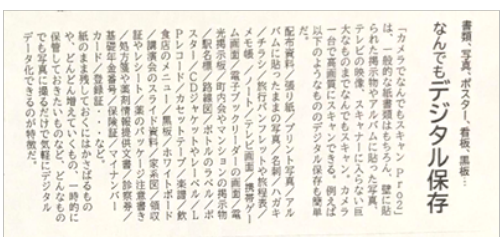 書類、写真、ポスター、看板、黒板…
なんでもデジタル保存
「カメラでなんでもスキャン Pro2」
は、一般的な紙書類はもちろん、壁に貼
られた掲示物やアルバムに貼った写真、
テレビの映像、スキャナーに入らない巨
大なものまでなんでもスキャン。カメラ
一台で高画質にスキャンできる。例えば
以下のようなもののデジタル保存も簡単
だ。
配布資料/張り紙/プリント写真/アル
バムに貼ったままの写真/名刺/ハガキ
/チラシ/旅行パンフレットや旅程表/
メモ帳/ノート/テレビ画面/携帯ゲー
ム画面/電子ブックリーダーの画面/電
光掲示板/町内会やマンションの掲示物
/駅名標/路線図/ボトルのラベル/ポ
スター/CDジャケットやレーベル/L
Pレコード/カセットテープ/楽譜/飲
食店のメニュー/黒板/ホワイトボード
/講演会のスライド資料/家系図/領収
証やレシート/薬のパッケージ注意書き
/処方箋や薬剤情報提供文書/診察券/
基礎年金番号/保険証/マイナンバー
カード/登録証 など。
紙のまま残しておくにはかさばるもの
や、どんどん増えていくもの、一時的に
保管しておきたいものなど、どんなもの
でも写真に撮るだけで気軽にデジタル
データ化できるのが特徴だ。